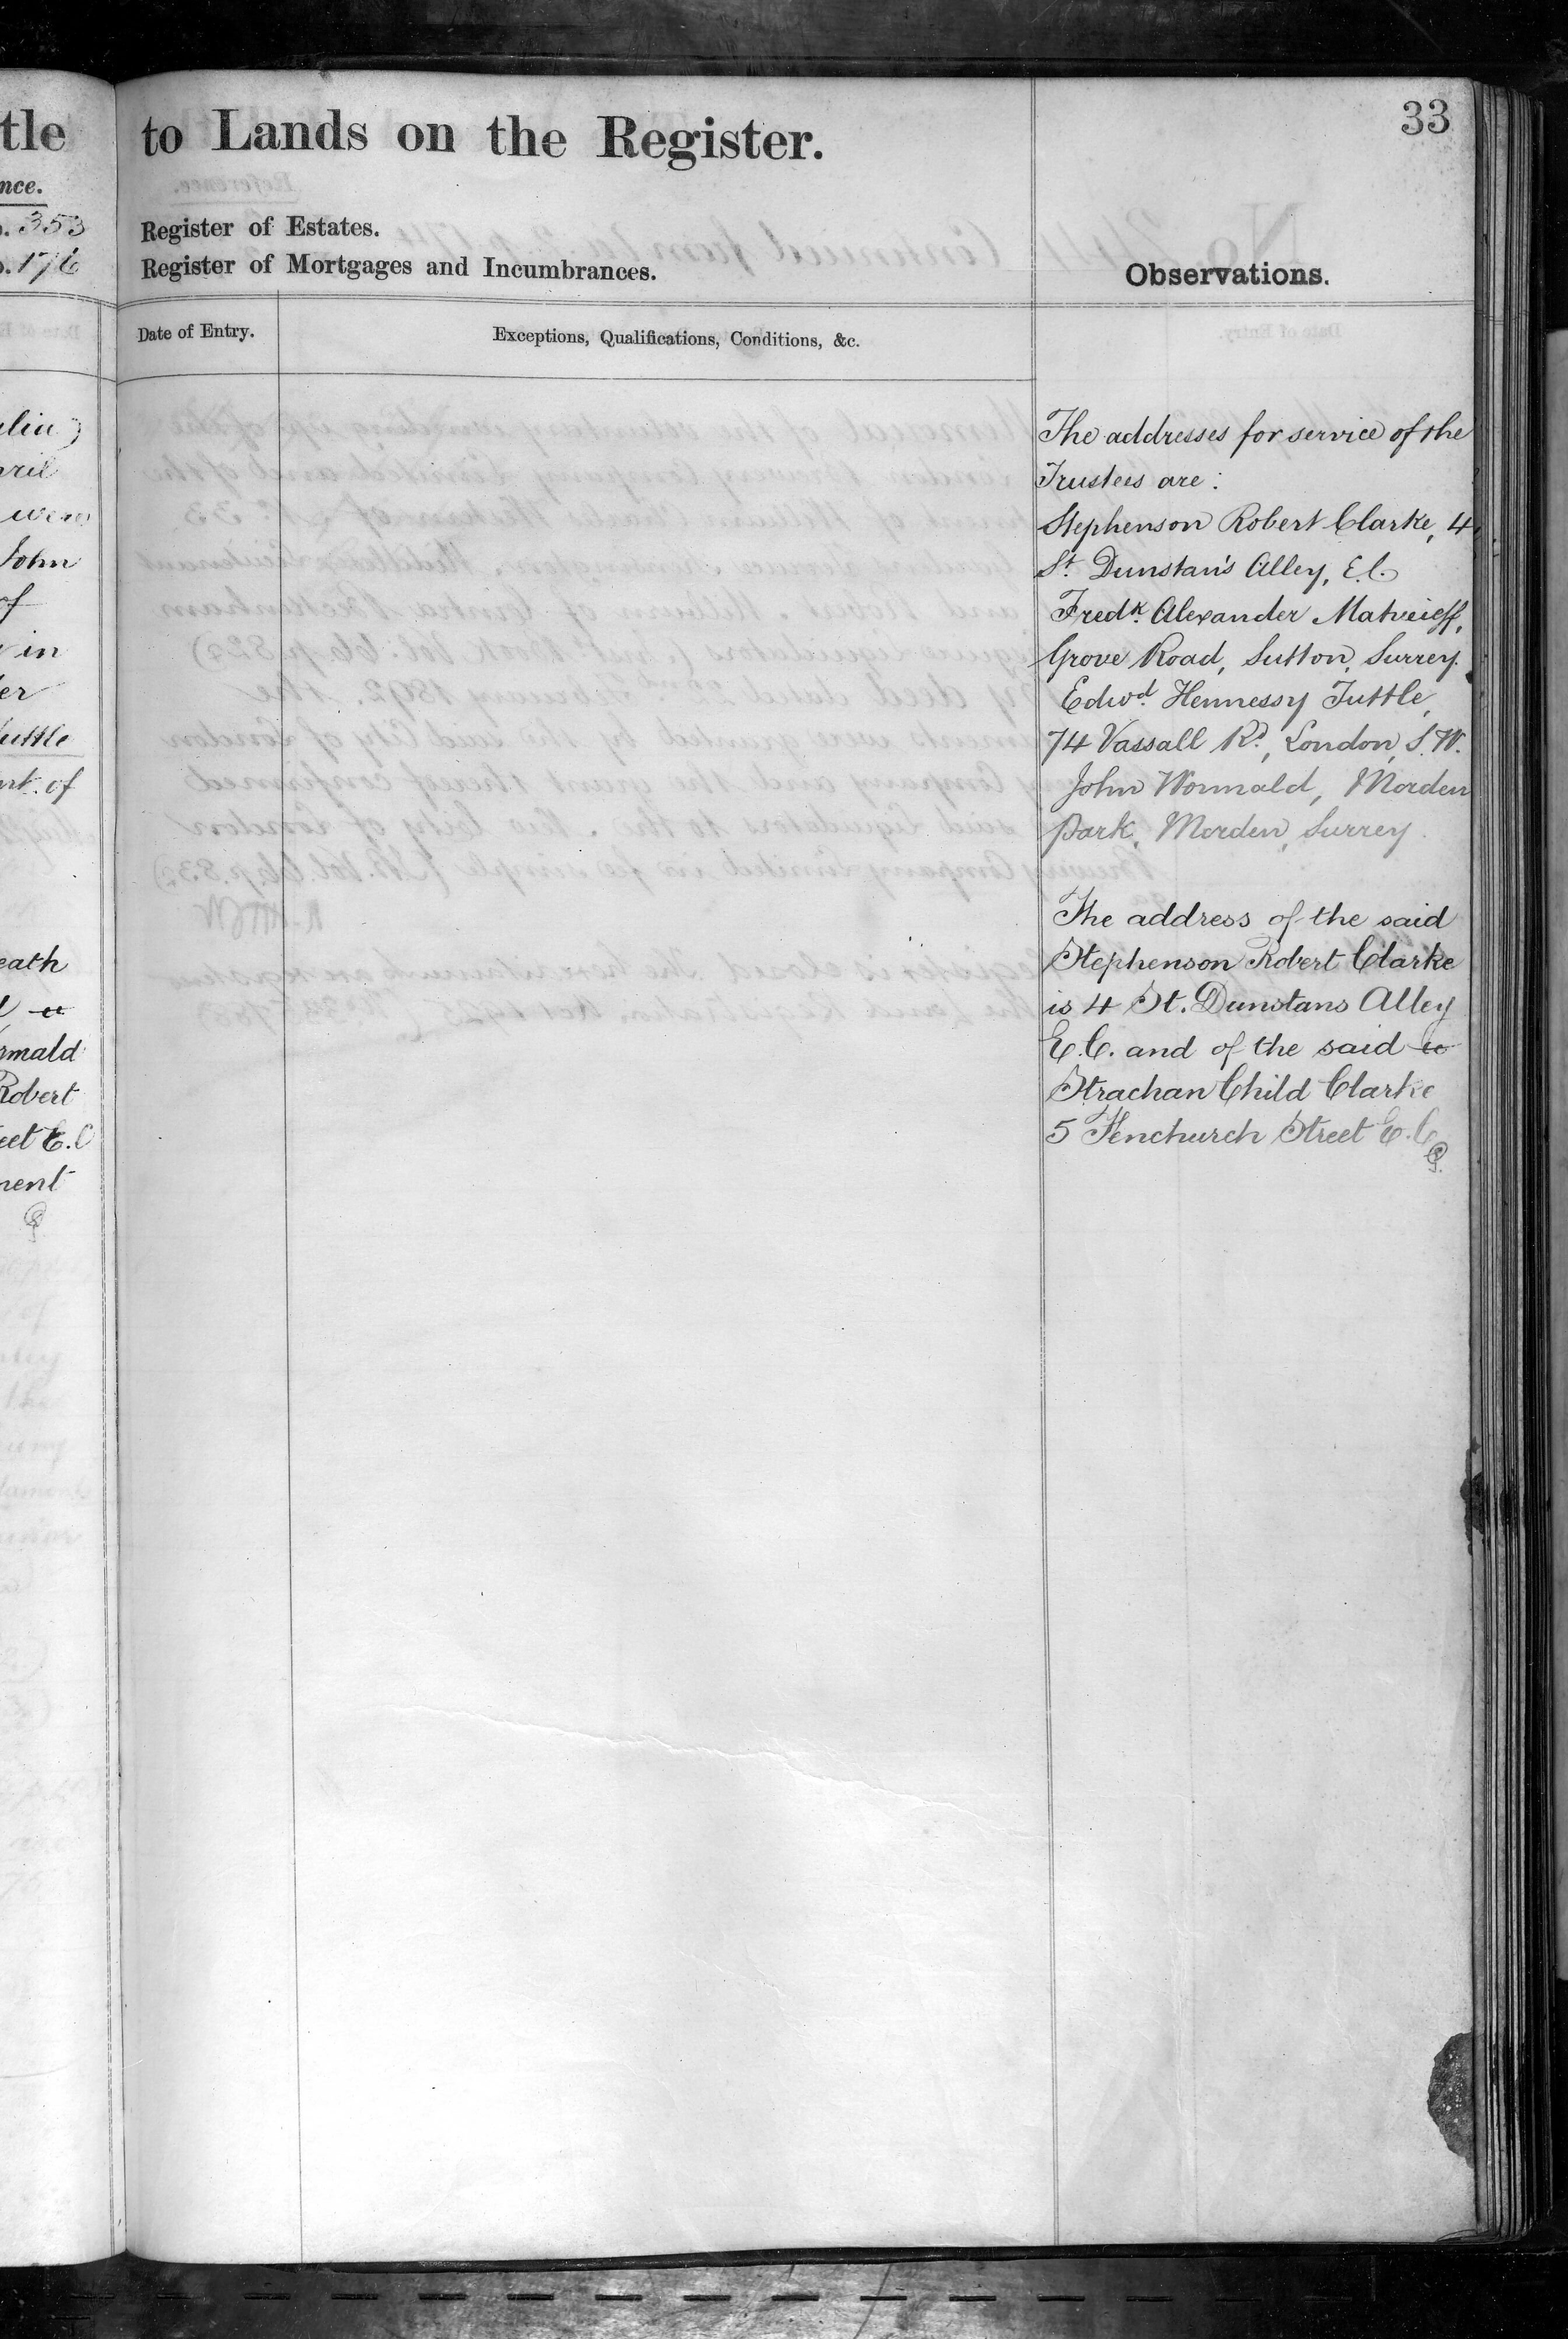 tle
nce.
353
176
ril
were
John
of
in
er
uttle
nt. of
eath
rmald
Robert
eet E.C
ment
to Lands on the Register.
33
Register of Estates.
Register of Mortgages and Incumbrances.
Observations.
Date of Entry.
Exceptions, Qualifications, Conditions, &c.
The addresses for service of the
Trustees are:
Stephenson Robert Clarke, 4
St. Dunstan's Alley, E.C.
Fredk. Alexander Matveieff,
Grove Road, Sutton, Surrey.
Edwd. Hennessy Tuttle,
74 Vassall Rd, London, S.W.
John Wormald, Morden
Park, Morden, Surrey.
The address of the said
Stephenson Robert Clarke
is 4 St. Dunstans Alley
E.C. and of the said
Strachan Child Clarke
5 Fenchurch Street E.C.